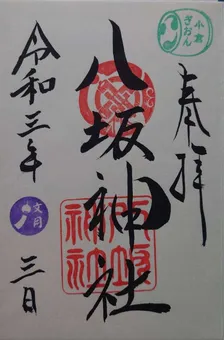 奉拝
小倉
ぎおん
八坂神社
八坂
神社
令和三年
文月
三日